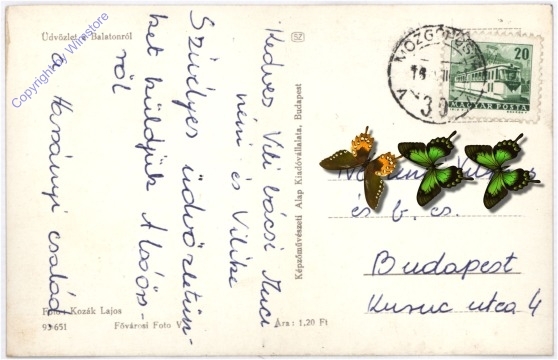 Üdvözlet a Balatonról
Copyright by Winstore
Kedves Vili bácsi Muci
néni és Vilike
Szivélyes üdvözletün-
ket küldjük Alsóörs-
ről
a Harsányi család
Foto: Kozák Lajos
93 651
Fővárosi Foto V.
SZ
Képzőművészeti Alap Kiadóvállalata, Budapest
Ára: 1,20 Ft
MOZGÓPOSTA
20
MAGYAR POSTA
és b. cs.
Budapest
Kuruc utca 4